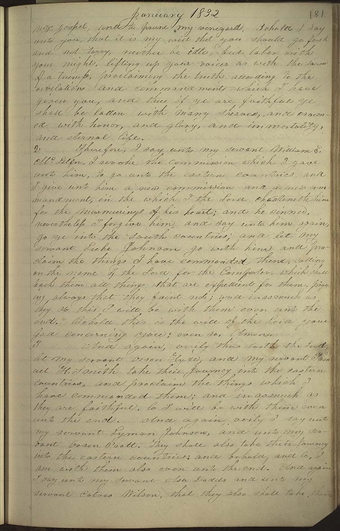 January 1832
my gospel, and to prune my vineyard. Behold I say
unto you, that it is my will that you should go forth
and not tarry, neither be idle, but labor with
your might, lifting up your voices as with the sound
of a trump, proclaiming the truth according to the
revelation and commandments which I have
given you, and thus if ye are faithful ye
shall be laden with many sheaves, and crown-
ed with honor, and glory, and immortality,
and eternal life.
2. Therefore, I say unto my servant William E.
McLellin, I revoke the commission which I gave
unto him, to go unto the eastern countries, and
I give unto him a new commission and a new com-
mandment, in the which I the Lord chasteneth him
for the murmurings of his heart; and he sinned,
nevertheless I forgive him, and say unto him again,
go ye into the south countries; and let my
servant Luke Johnson go with him and pro-
claim the things I have commanded them, calling
on the name of the Lord for the Comforter, which shall
teach them all things that are expedient for them, pray-
ing always that they faint not; and inasmuch as
they do this, I will be with them even unto the
end. Behold this is the will of the Lord your
God concerning you; even so. Amen.
3. And again, verily thus saith the Lord,
let my servant Orson Hyde, and my servant Sam-
uel H. Smith take their journey into the eastern
countries, and proclaim the things which I
have commanded them; and inasmuch as
they are faithful, lo I will be with them even
unto the end. And again, verily I say unto
my servant Lyman Johnson, and unto my ser-
vant Orson Pratt, they shall also take their journey
into the eastern countries; and behold, and lo, I
am with them also even unto the end. And again
I say unto my servant Asa Dodds and unto my
servant Calves Wilson, that they also shall take